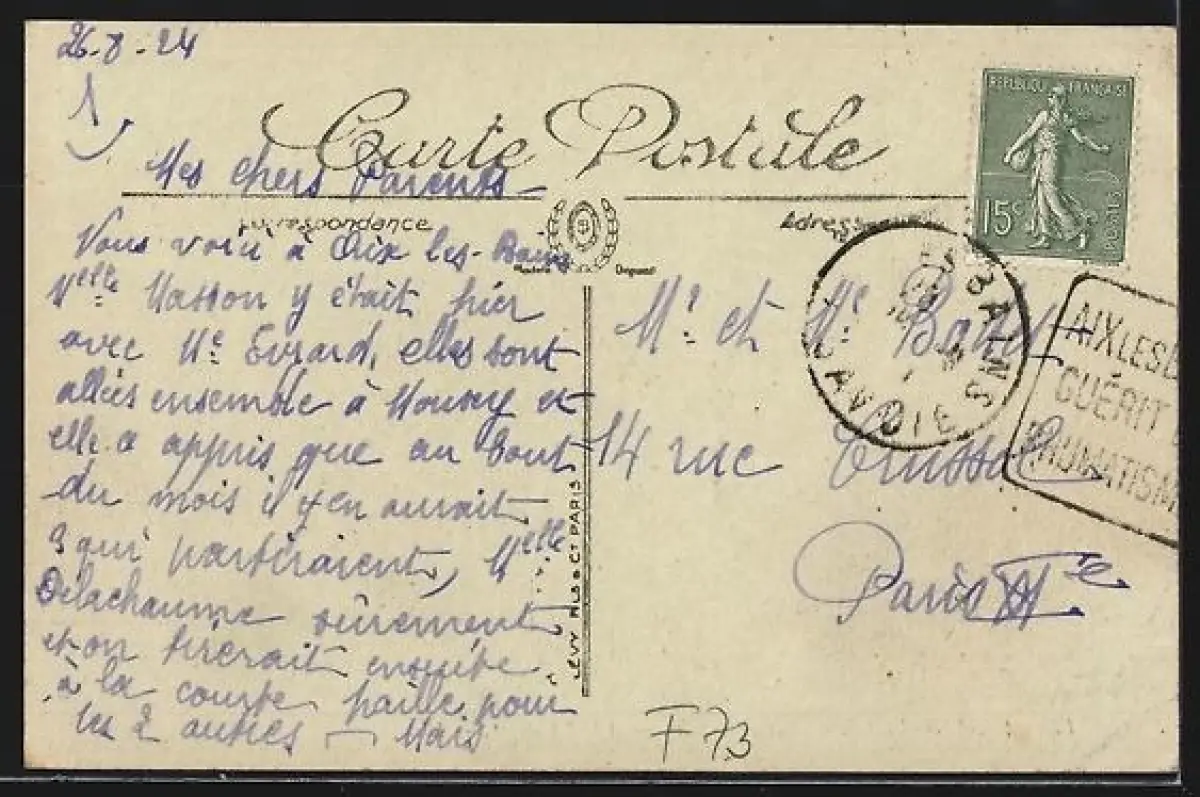 26-8-24
Carte Postale
RÉPUBLIQUE FRANÇAISE
15c
POSTES
Mes chers Parents -
Correspondance
Adresse
Vous voici à Aix les-Bains
Melle Masson y était hier
avec Me Evrard, elles sont
allées ensemble à et
elle a appris que au bout
du mois il y en aurait
3 qui partiraient, Melle
Delachaume sûrement
et on tirerait ensuite
à la courte paille pour
les 2 autres - Mais
LEVY FILS & Cie PARIS
Mr et Me
14 rue
Paris
ES BAINS
SAVOIE
AIX LES B
GUÉRIT
RHUMATISM
F73